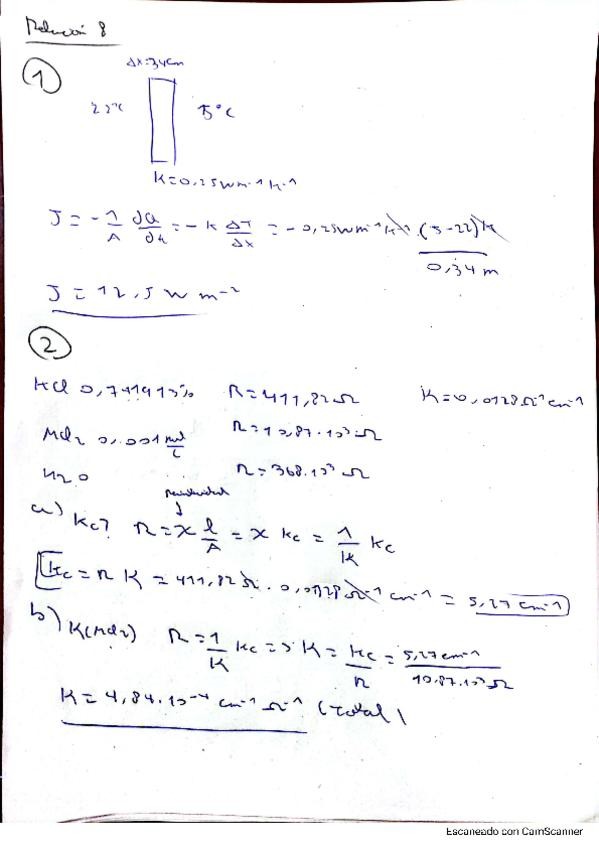 Relación 8
1
Δx: 34cm
22°C 5°C
K=0,25Wm⁻¹K⁻¹
J = -1/A dQ/dt = -K ΔT/Δx = -0,25Wm⁻¹K⁻¹ (5-22)K / 0,34 m
J = 12,5 W m⁻²
2
KCl 0,741913% R=411,82Ω K=0,0128Ω⁻¹cm⁻¹
MCl₂ 0,001 mol/L R=10,87·10³Ω
H₂O R=368·10³Ω
resistividad
a) Kc? R=x l/A = x Kc = 1/K Kc
Kc = R K = 411,82Ω·0,0128Ω⁻¹cm⁻¹ = 5,27cm⁻¹
b) K(MCl₂) R=1/K Kc => K = Kc/R = 5,27cm⁻¹/10,87·10³Ω
K = 4,84·10⁻⁴ cm⁻¹ Ω⁻¹ (Total)
Escaneado con CamScanner